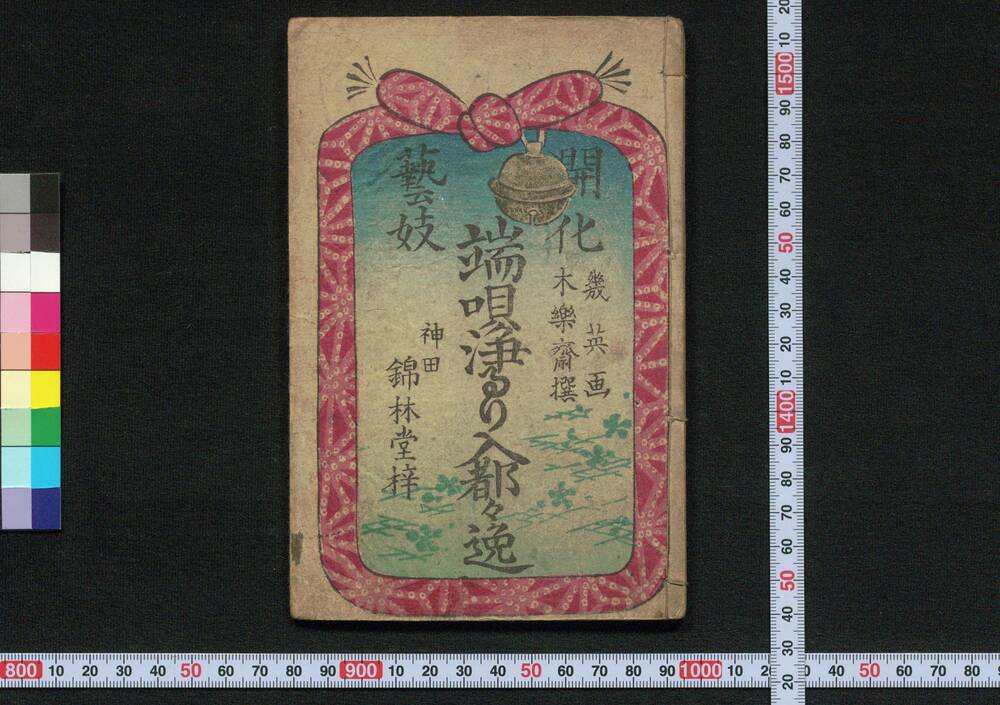 開化
幾英画
木樂齋撰
端唄浄るり入都々逸
藝妓
神田
錦林堂梓
20
10
1500
90
80
70
60
50
40
30
20
10
1400
90
80
70
60
50
40
30
20
800 10 20 30 40 50 60 70 80 900 10 20 30 40 50 60 70 80 90 1000 10 20 30 40 50 60 70 80